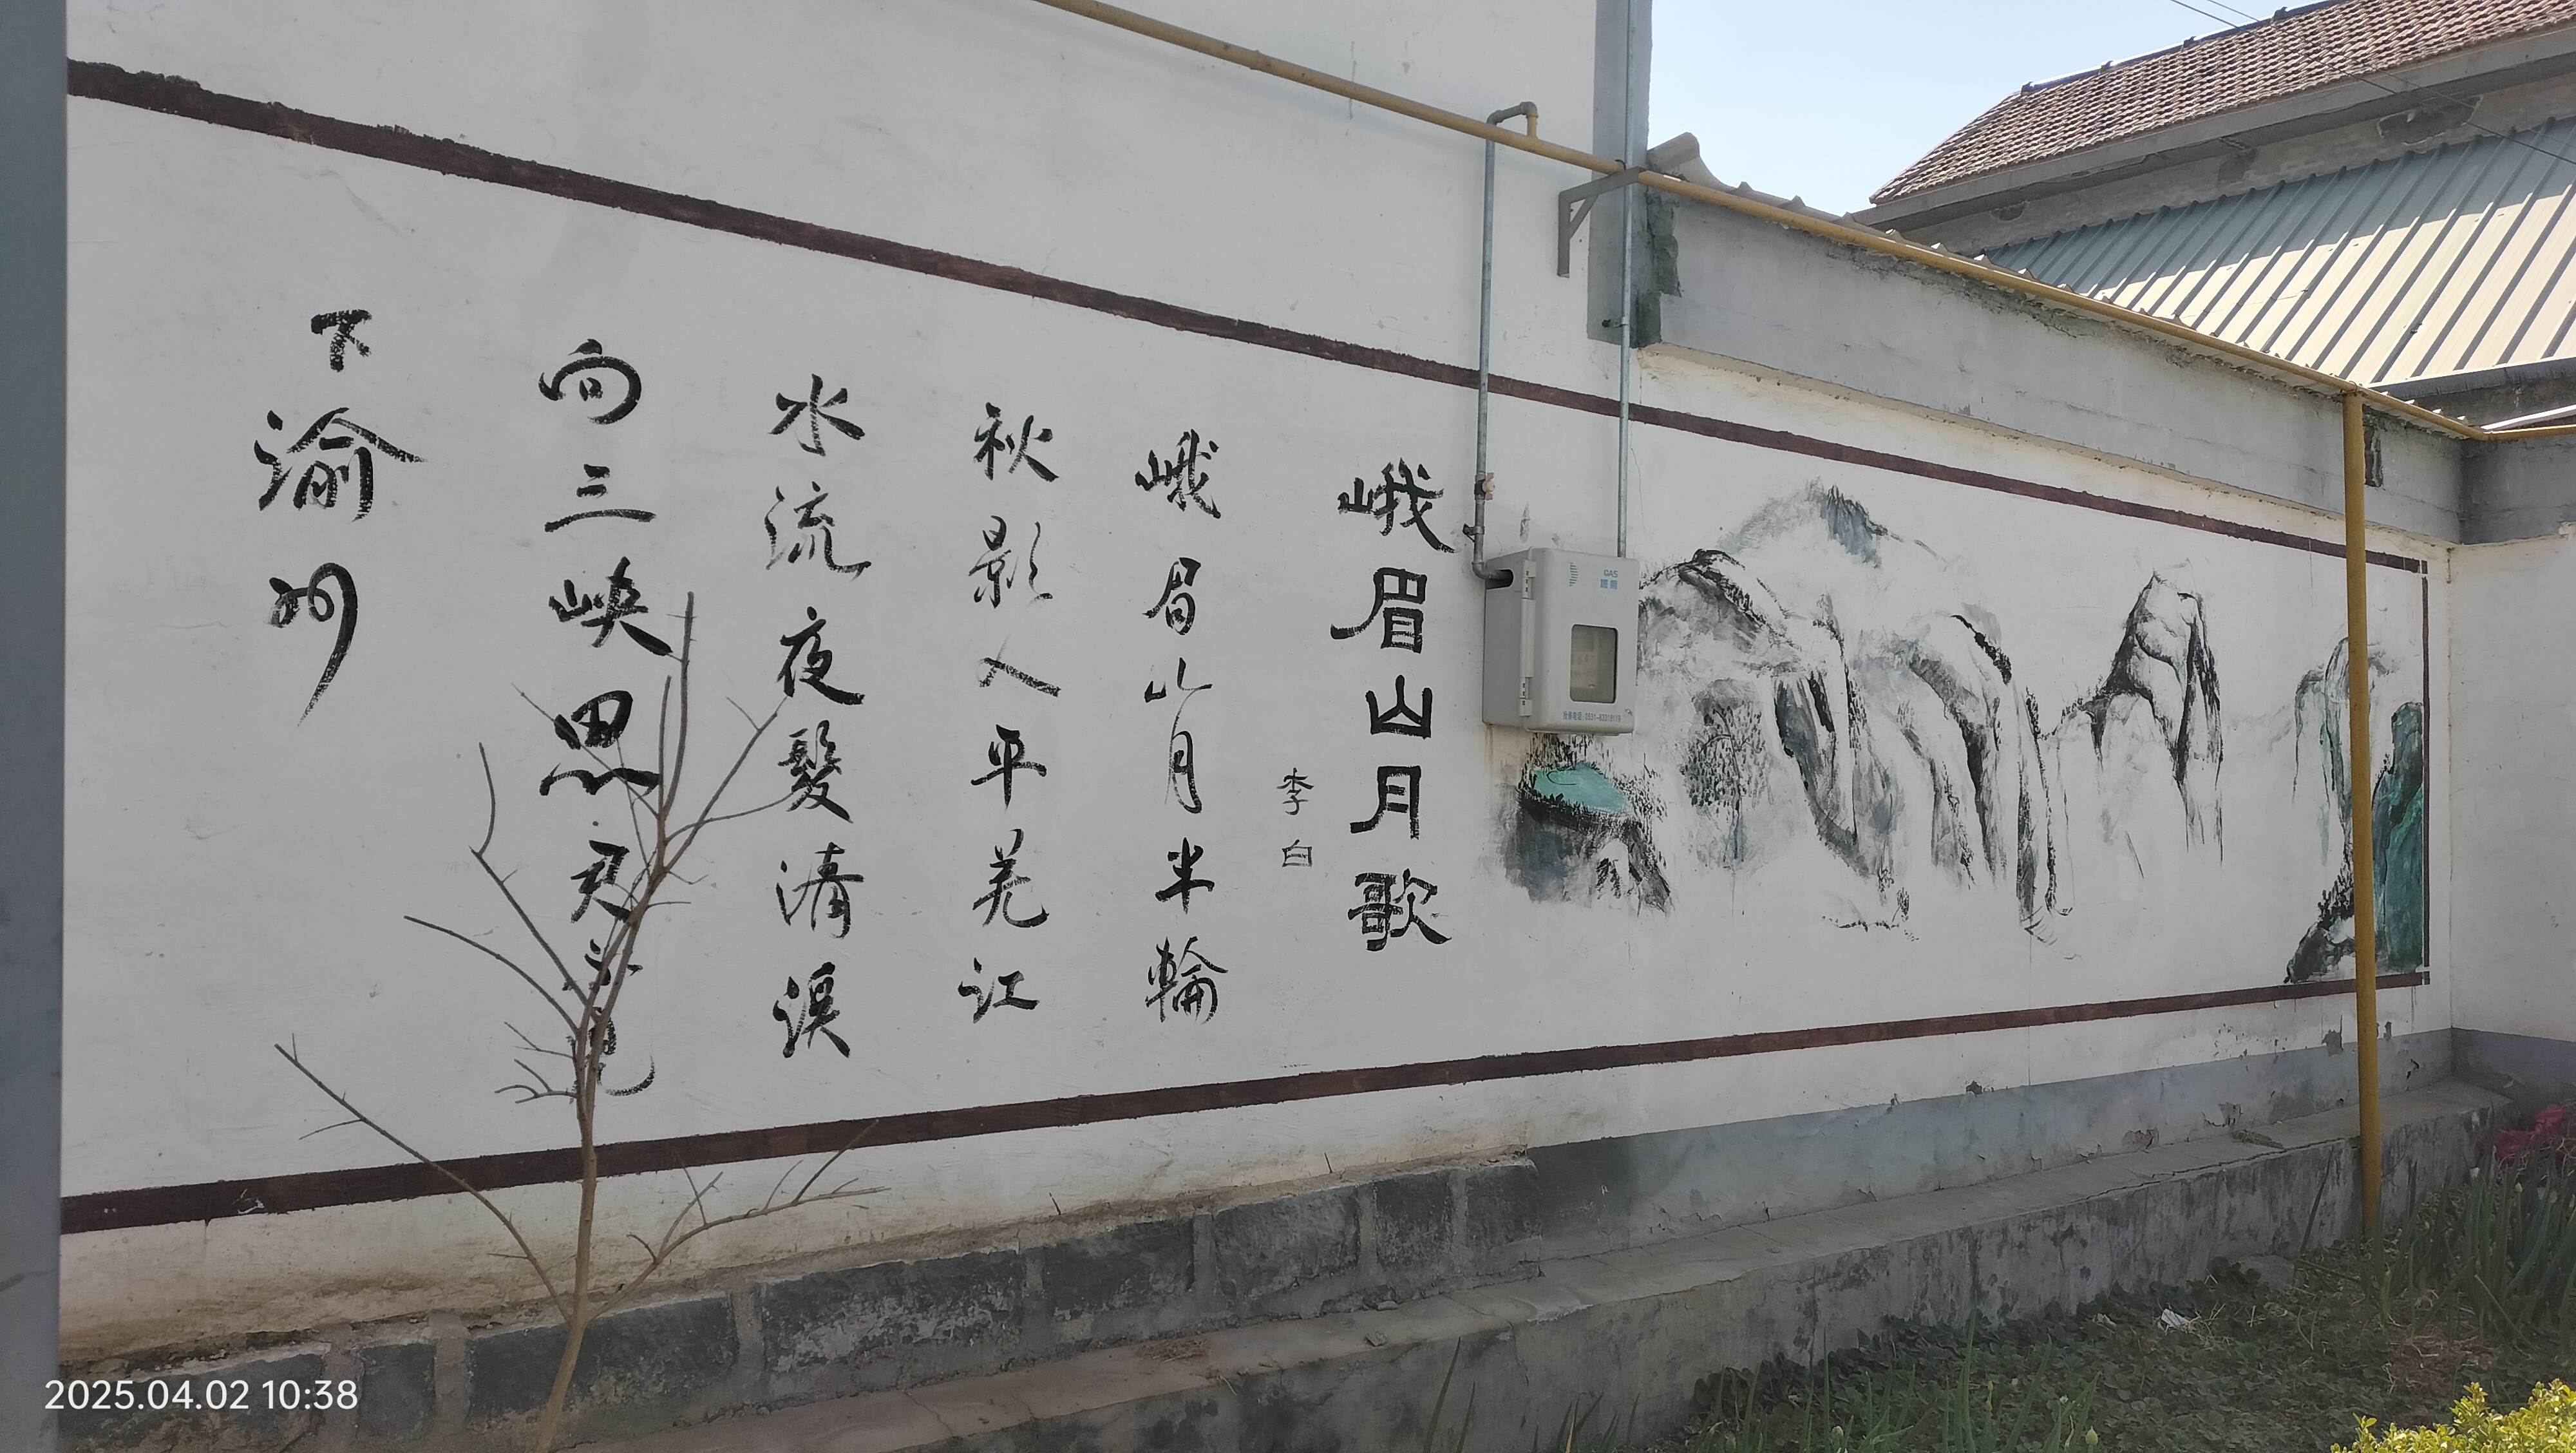 峨眉山月歌
李白
峨眉山月半輪
秋影入平羌江
水流夜發清溪
向三峡思君不見
下渝州
GAS
2025.04.02 10:38